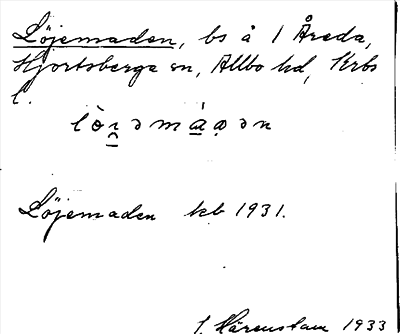 Löjemaden, bs å 1 Åreda,
Hjortsberga sn, Allbo hd, Krbs
l.
Löjemaden kb 1931.
I. Härenstam 1933